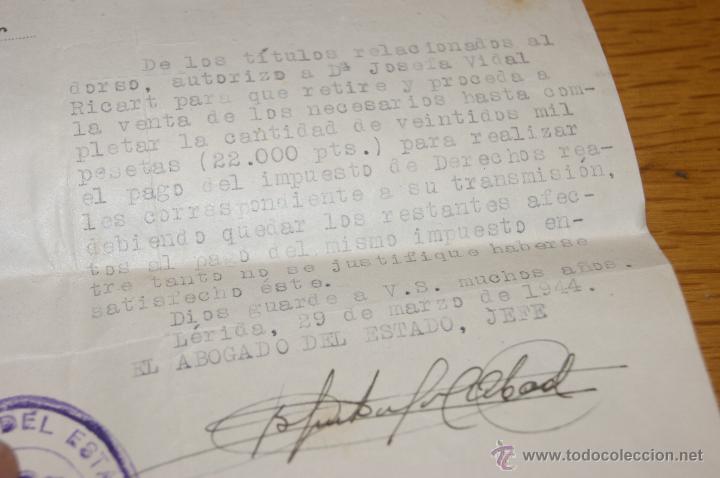 De los títulos relacionados al
dorso, autorizo a Dª Josefa Vidal
Ricart para que retire y proceda a
la venta de los necesarios hasta com-
pletar la cantidad de veintidos mil
pesetas (22.000 pts.) para realizar
el pago del impuesto de Derechos rea-
les correspondiente a su transmisión,
debiendo quedar los restantes afec-
tos al pago del mismo impuesto en-
tre tanto no se justifique haberse
satisfecho éste.
Dios guarde a V.S. muchos años.
Lérida, 29 de marzo de 1944.
EL ABOGADO DEL ESTADO, JEFE
Abad
DEL ESTA
www.todocoleccion.net